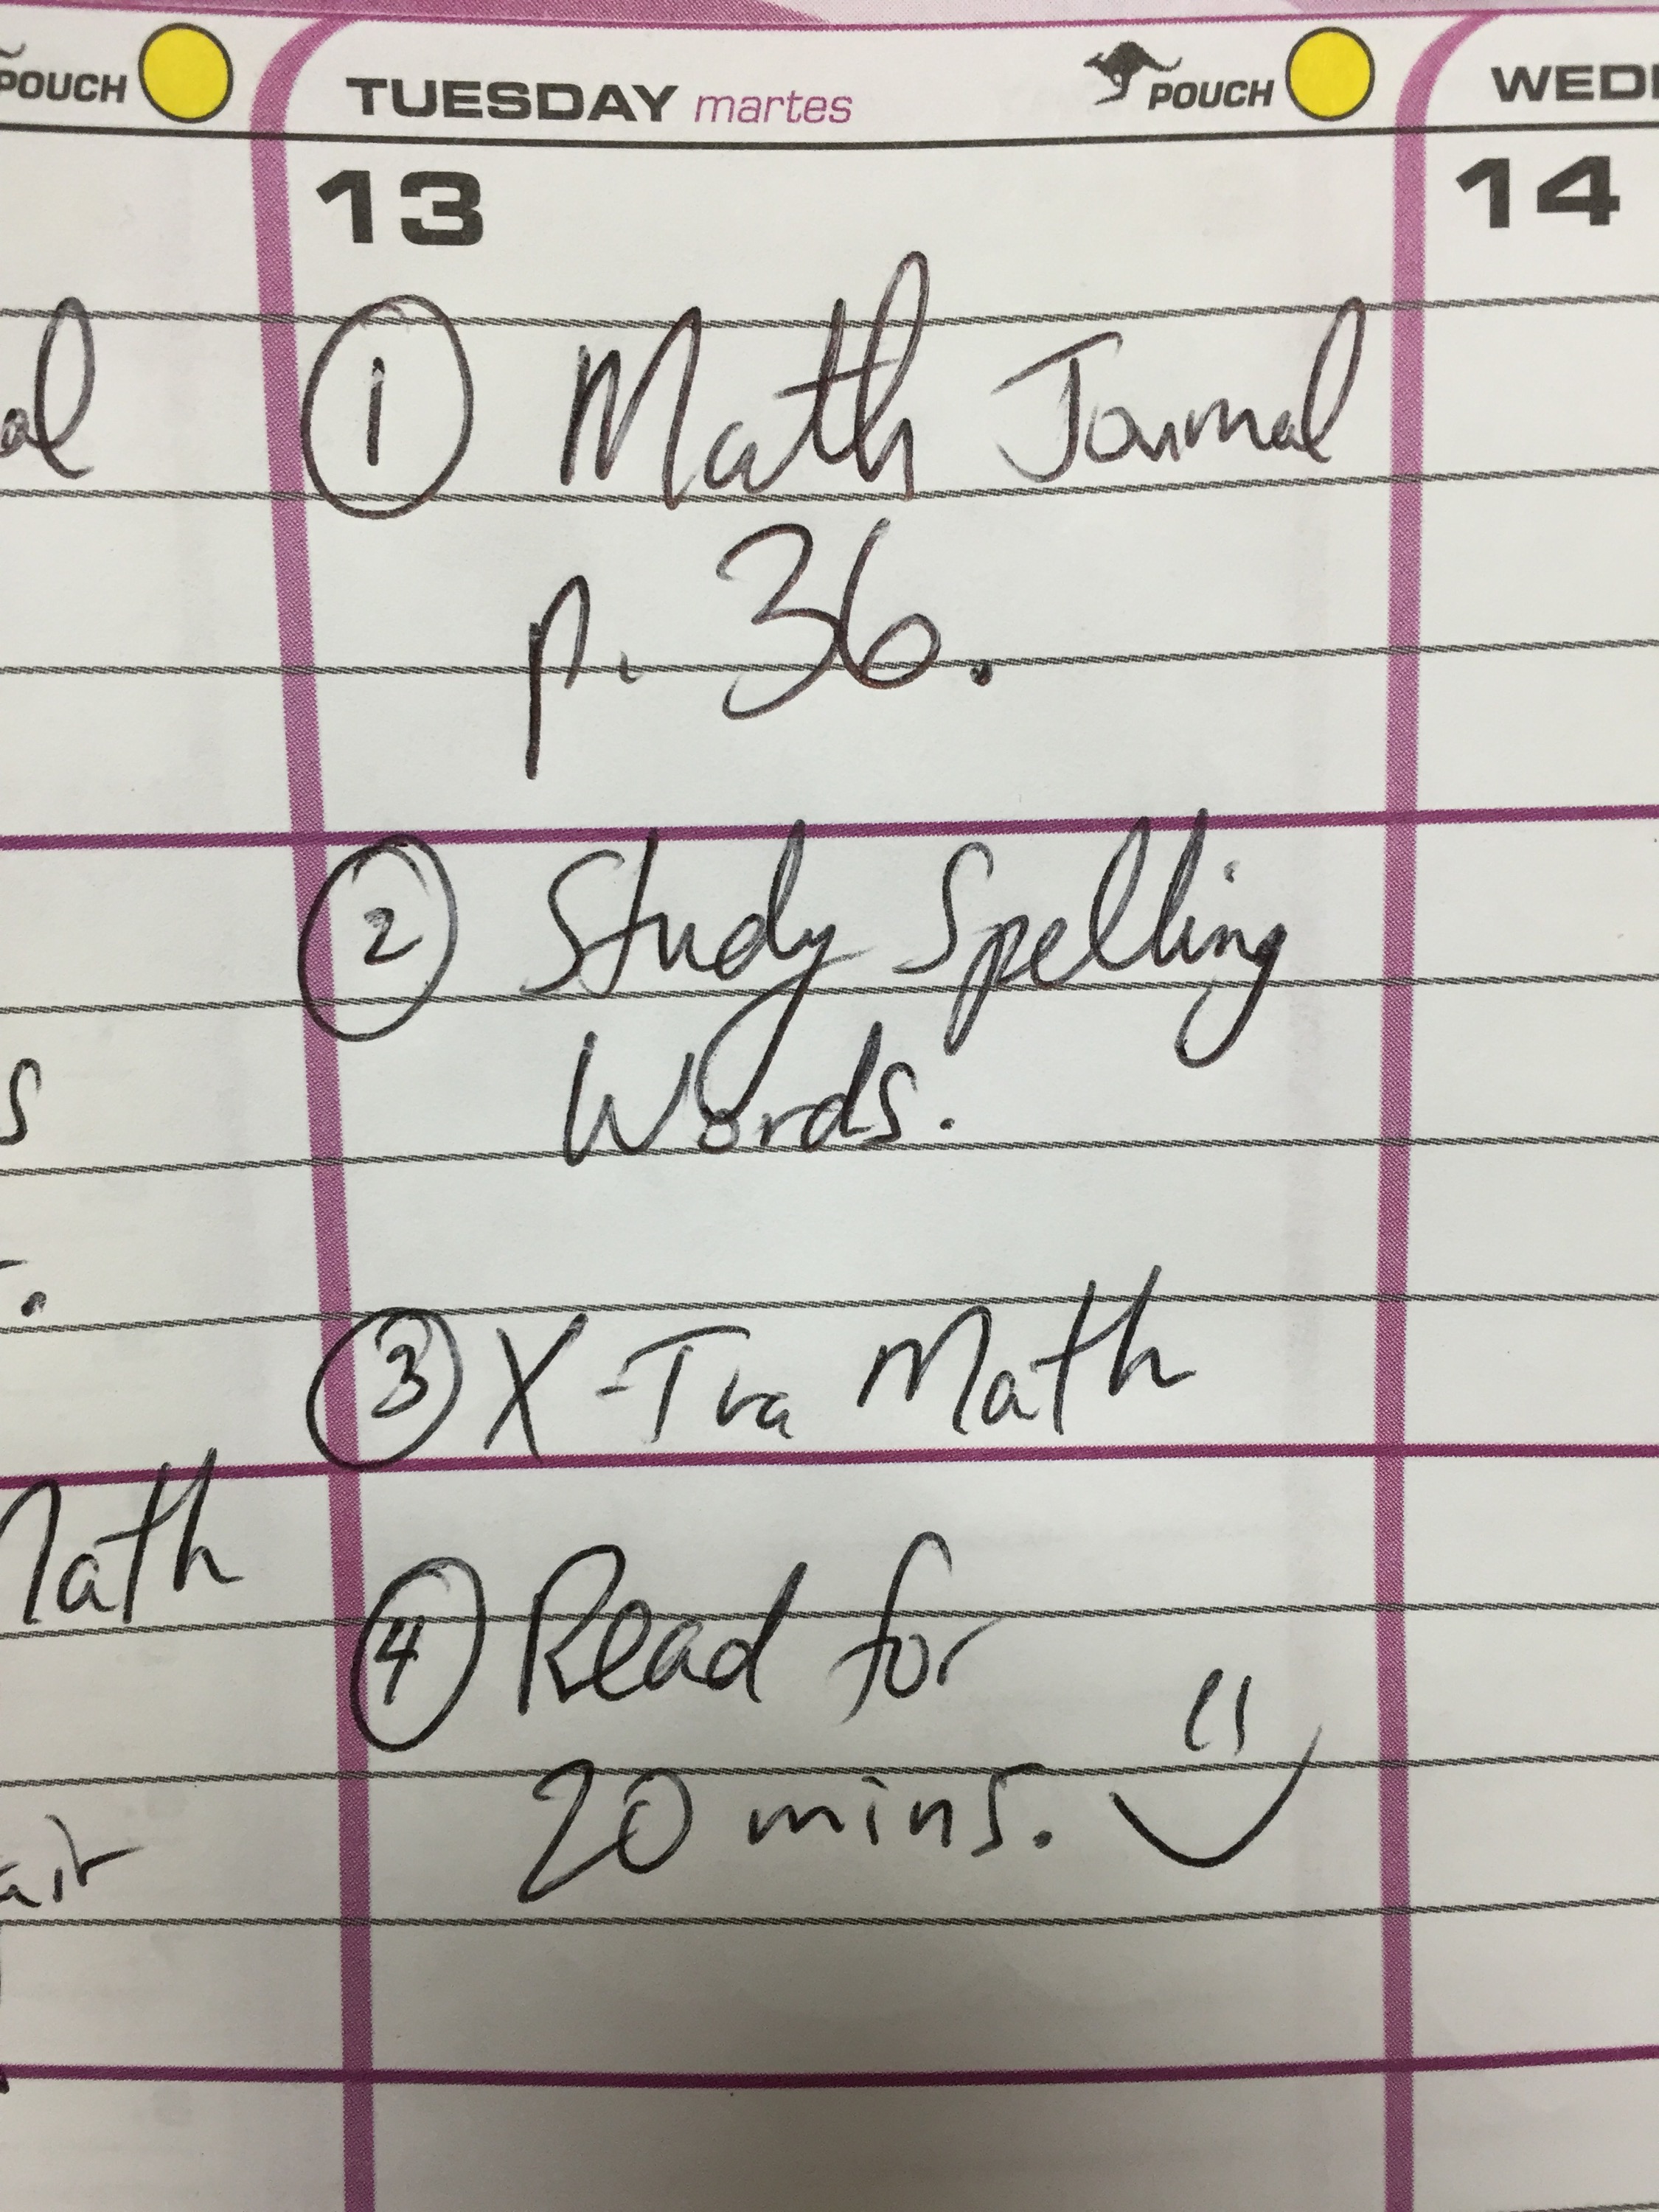 POUCH
TUESDAY martes
POUCH
13
14
① Math Journal
p. 36.
② Study Spelling
Words.
③ X-Tra Math
④ Read for
20 mins.